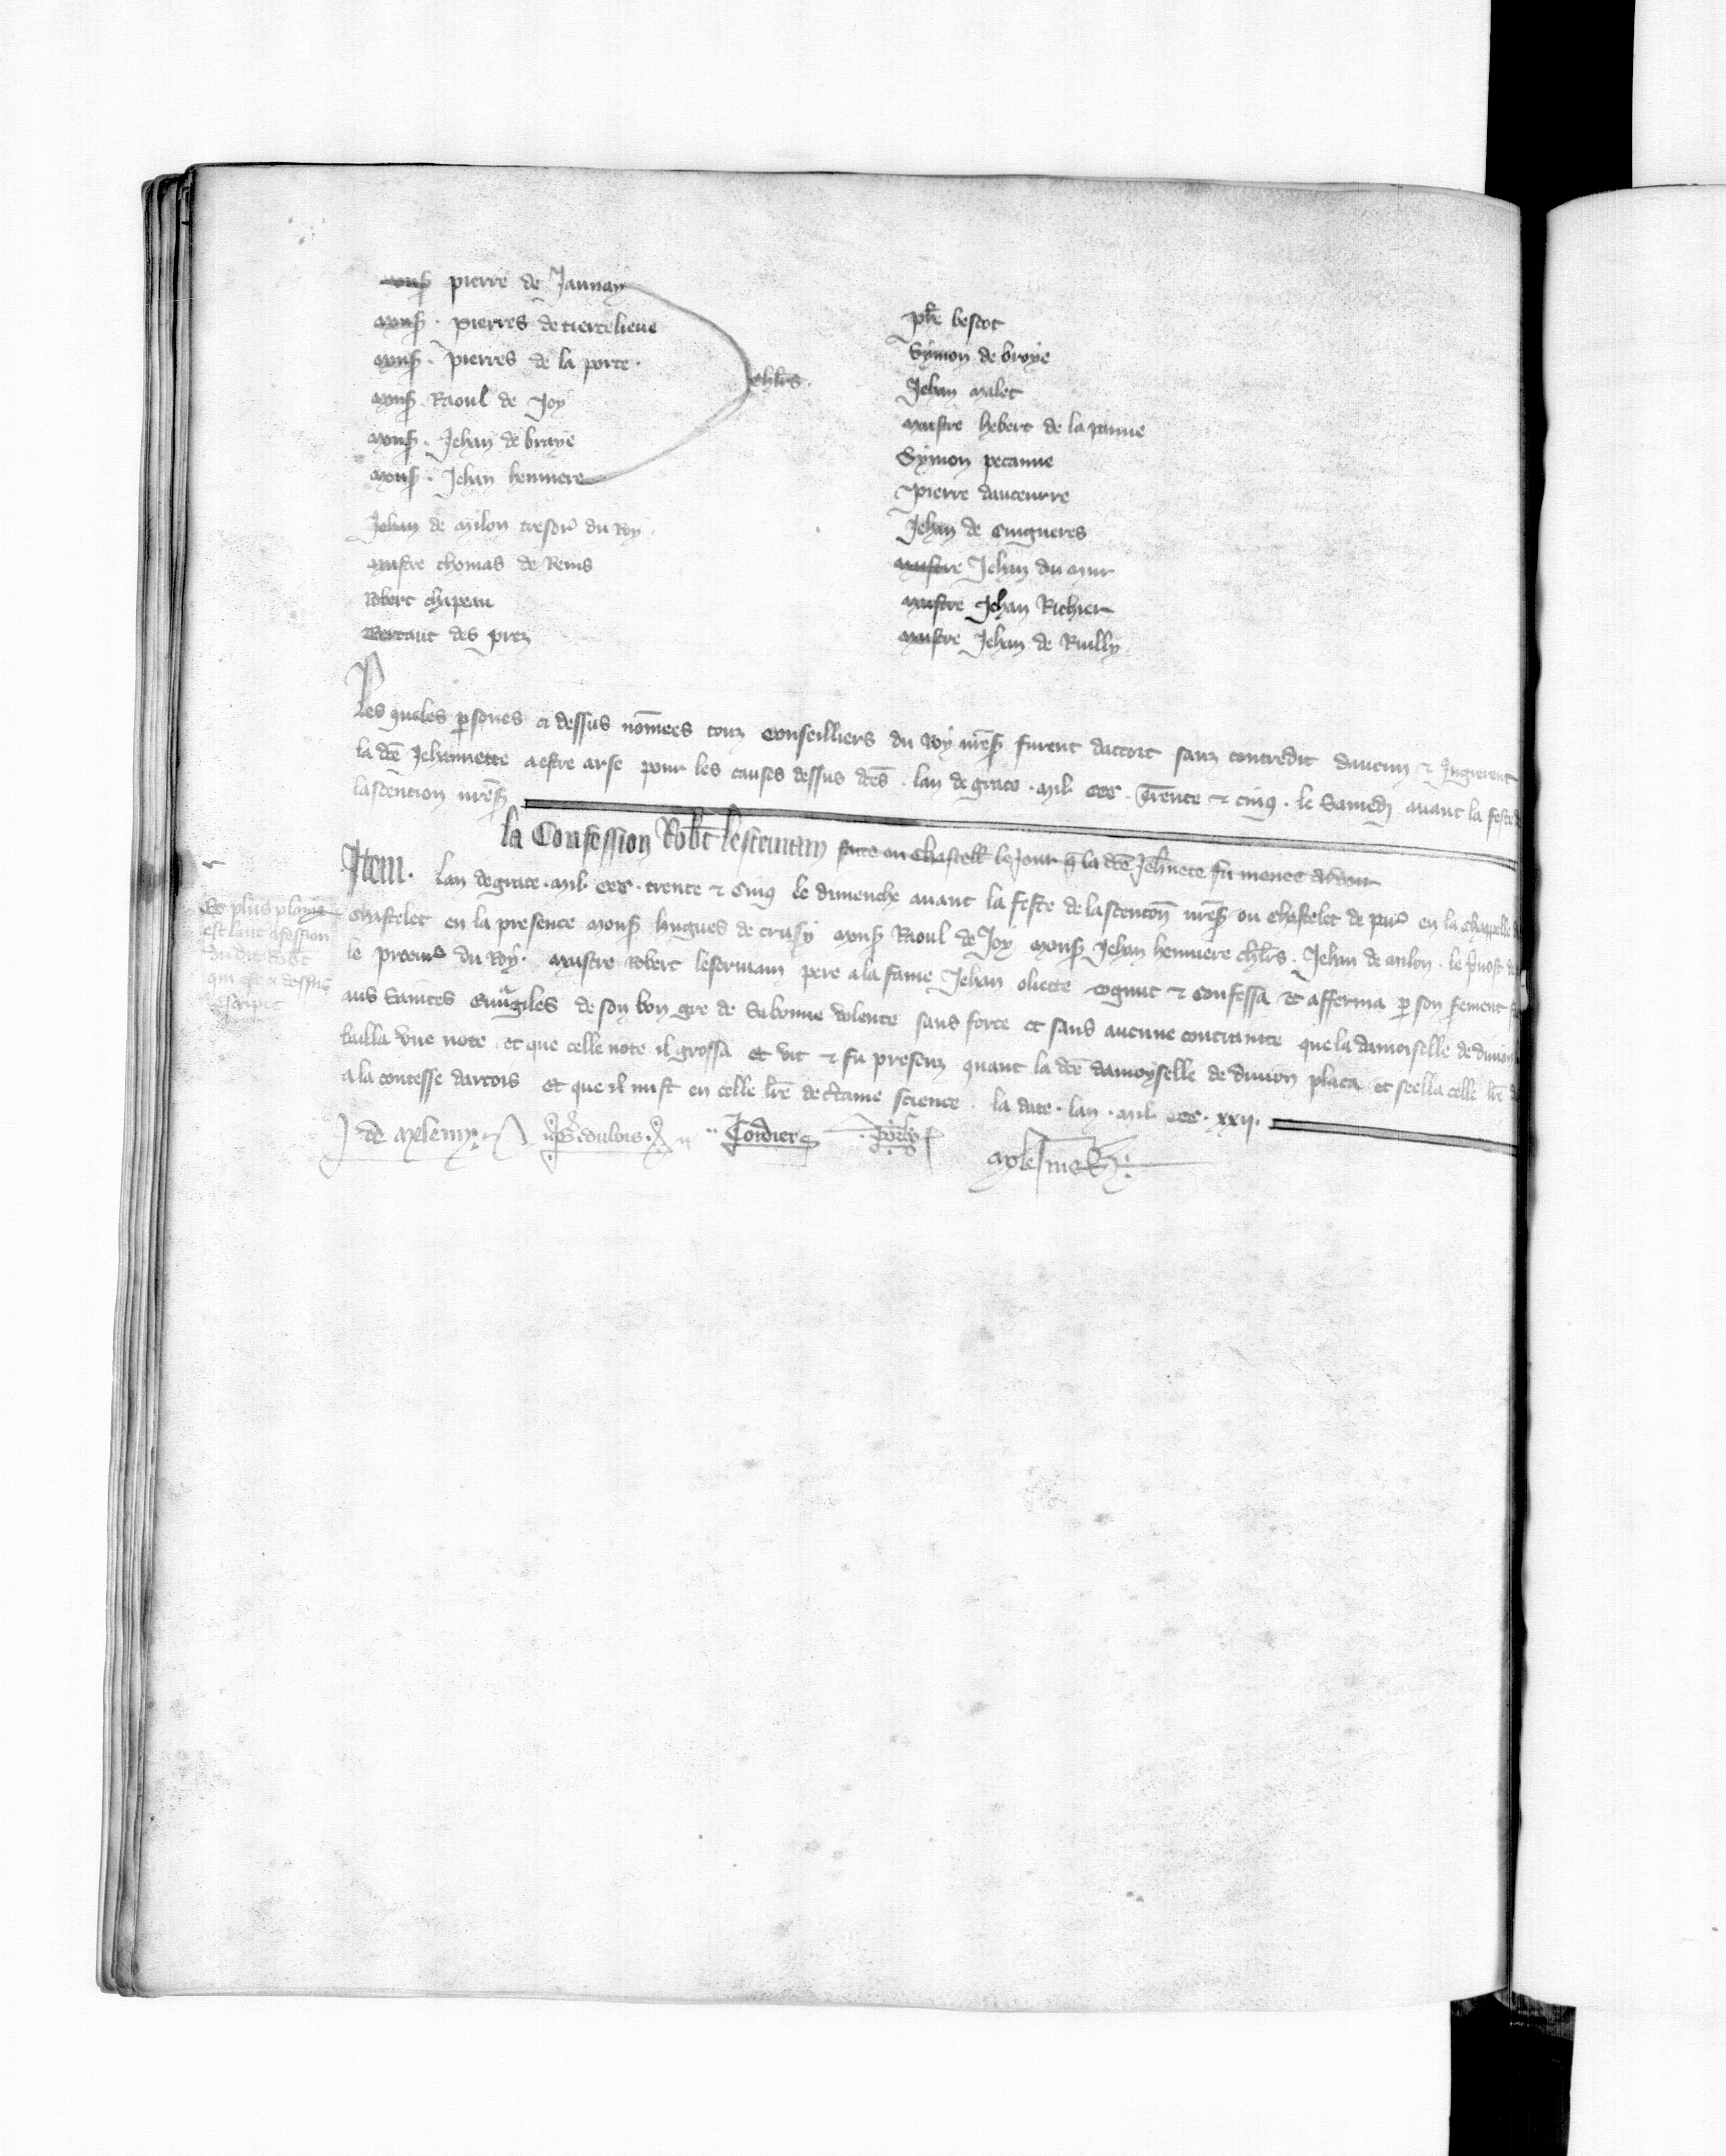 mons̃ pierre de Jaunay
mons̃ . Pierres de tiercelieue
mons̃ . Pierres de la porte .
mons̃ . Raoul de Joy
mons̃ . Jehan de braye
mons̃ . Jehan hennuere
chl̃rs .
Jehan de milon tresor̃ du Roy
maistre thomas de Reins
Robert chipeau
Bertaut des prez
Ph̃e bescot
Symon de broye
Jehan malet
maistre hebert de la panne
Symon pecanne
Pierre dauceurre
Jehan de Cuigneres
maistre Jehan du mur
maistre Jehan Richier
maistre Jehan de Ruilly
Les queles psones ci dessus nõmees touz conseilliers du Roy nr̃es̃ furent dacort sanz contredit daucun & Jugierent
la dc̃e Jehannette a estre arse pour les causes dessus dc̃es . lan de grace . mil . ccc . Trente & cinq . le Samedi avant la feste
lascention nr̃es̃
la Confession Rob̃t lescriuain faite ou Chastell̃ le Jour q̃ la dc̃e Jeh̃nete fu menee ardoir
Item . lan de grace . mil . ccc . trente & cinq le dimenche avant la feste de lascencoñ nr̃es̃ ou chastelet de par̃ en la chappelle
chastelet en la presence mons̃ hugues de crusy mons̃ Raoul de Joy mons̃ Jehan hennuere chl̃rs . Jehan de milon . le p̃uost
le procur̃ du Roy . maistre Robert lescriuain pere a la fame Jehan oliete cognut & confessa et afferma p son serement
aus Saintes Euuãgiles de son bon gre de sa bonne volente sans force et sans aucune contrainte que la damoiselle de diuion
bailla vne note et que celle note il grossa et vit & fu presenz quant la dc̃e damoyselle de diuion placa et seella celle lr̃e
a la contesse dartois et que il mist en celle lr̃e de c̃taine science . la date . lan . mil . ccc . xxij .
Et plus plaine
est laut̃ cõfession
du dit Rob̃t
qui est ci dessus
escripte
J de meleun
dubois
Cordier